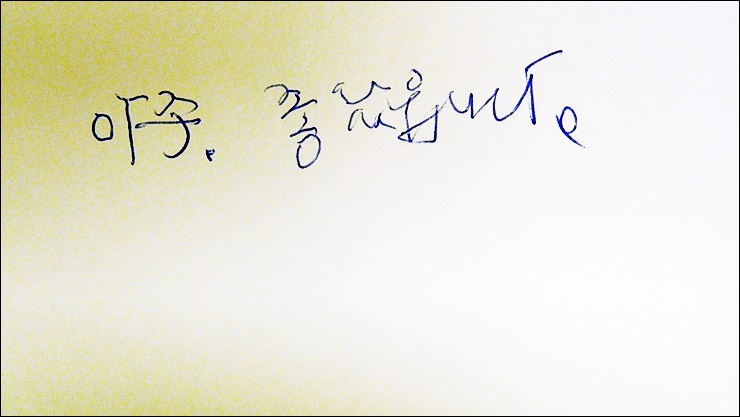 아주. 좋았읍니다.